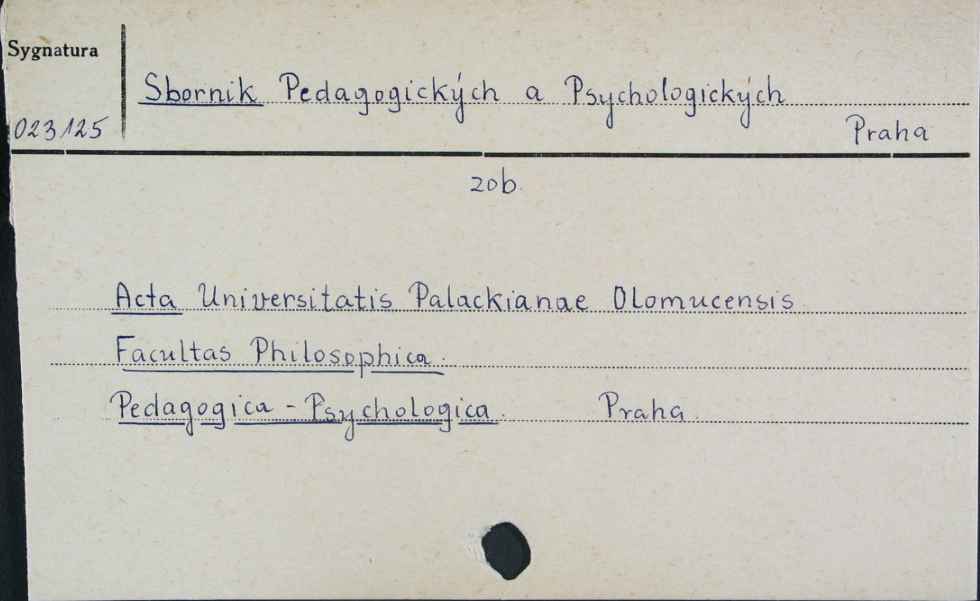 Sygnatura
Sbornik Pedagogických a Psychologických
023125
Praha
zob.
Acta Universitatis Palackianae Olomucensis
Facultas Philosophica.
Pedagogica - Psychologica. Praha.